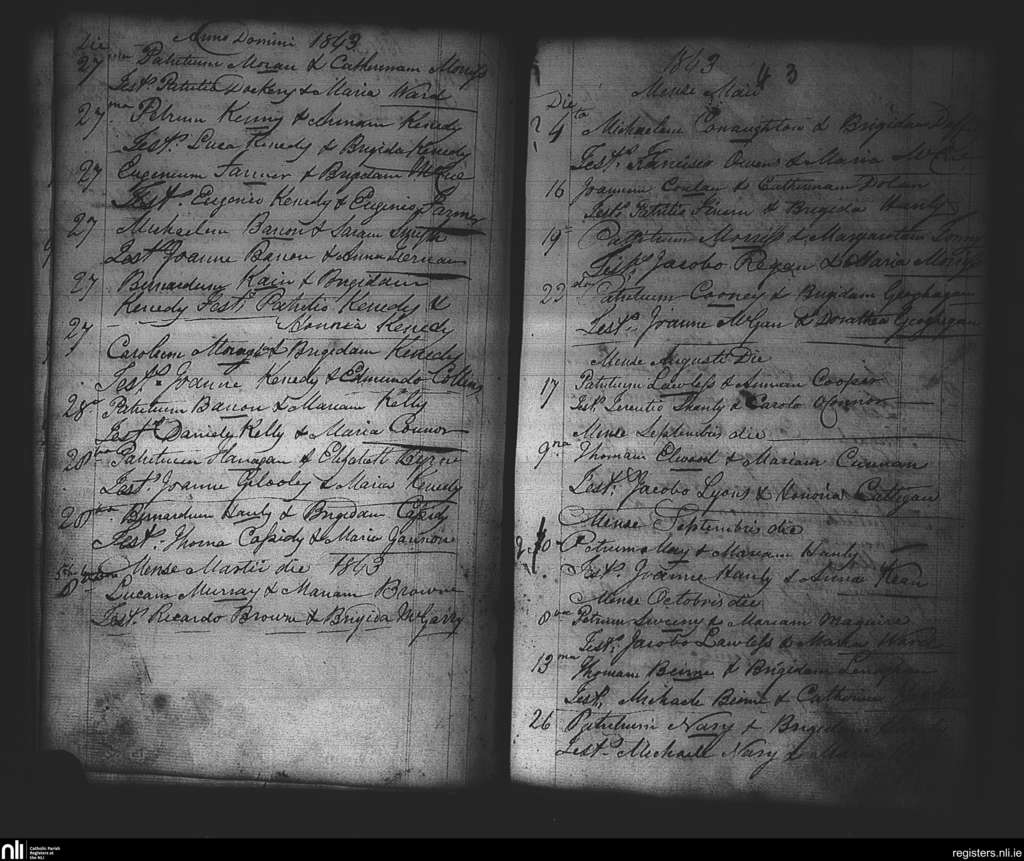 Anno Domini 1843
Die
27 ma Patritium Moran & Catherinam Morris
Test. Patritio Dockery & Maria Ward
27 ma Petrum Kenny & Annam Kenedy
Test. Luca Kenedy & Brigida Kenedy
27 Eugenium Farmer & Brigidam McCue
Test. Eugenio Kenedy & Eugenio Farmer
27 Michaelem Banon & Saram Smyth
Test. Joanne Banon & Anna Kernan
27 Bernardum Kain & Brigidam
Kenedy Test. Patritio Kenedy &
Honoria Kenedy
27
Carolum & Brigidam Kenedy
Test. Joanne Kenedy & Edmundo Collins
28 Patritium Banon & Mariam Kelly
Test. Daniely Kelly & Maria Connor
28 Patritium Flanagan & Elizabeth Beirne
Test. Joanne Gilooley & Maria Kenedy
28 Bernardum Hanly & Brigidam Casidy
Test. Thoma Casidy & Maria Gannon
Mense Martii die 1843
8 Lucam Murray & Mariam Browne
Test. Ricardo Browne & Brigida McGarry
1843
43
Mense Maii
Die
4 ta Michaelem Conaughton & Brigidam
Test. Francisco Owens & Maria McCue
16 Joannem Conlan & Catherinam Dolan
Test. Patritio & Brigida Hanly
19 Patritium Morriss & Margaretam
Test. Jacobo Regan & Maria Morriss
23 Patritium Cooney & Brigidam Geoghagan
Test. Joanne McGan & Dorathea Geoghagan
Mense Augusti Die
17 Patritium Lawless & Annam Cooper
Test. Terentio Shanly & Carolo OConnor
Mense Septembris die
9 na Thomam Elwood & Mariam
Test. Jacobo Lyons & Honoria Cattegan
Mense Septembris die
Petrum May & Mariam Hanly
Test. Joanne Hanly & Anna Kean
Mense Octobris die
8 va Petrum Sweeny & Mariam Maguire
Test. Jacobo Lawless & Maria Ward
13 ma Thomam Beirne & Brigidam
Test. Michaele Beirne & Catherina
26 Patritium Nary & Brigidam
Test. Michaele Nary &
nli
Catholic Parish
Registers at
the NLI
registers.nli.ie